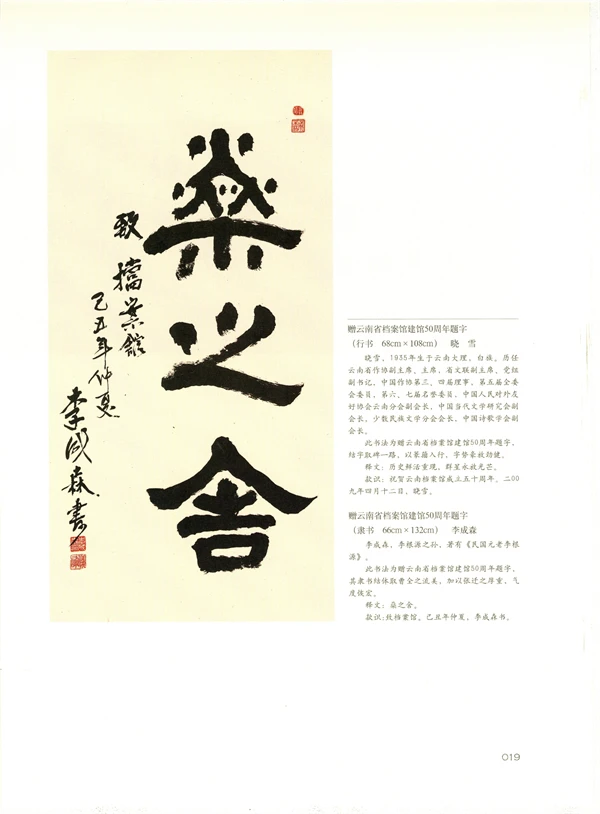 燊之舍
致 档案館
己丑年仲夏
李成森書
赠云南省档案馆建馆50周年题字
（行书　68cm×108cm）　晓　雪
晓雪，1935年生于云南大理，白族。历任
云南省作协副主席、主席，省文联副主席、党组
副书记，中国作协第三、四届理事，第五届全委
会委员，第六、七届名誉委员，中国人民对外友
好协会云南分会副会长，中国当代文学研究会副
会长，少数民族文学分会会长，中国诗歌学会副
会长。
此书法为赠云南省档案馆建馆50周年题字，
结字取碑一路，以篆籀入行，字势豪放劲健。
释文：历史鲜活重现，群星永放光芒。
款识：祝贺云南档案馆成立五十周年，二00
九年四月十二日，晓雪。
赠云南省档案馆建馆50周年题字
（隶书　66cm×132cm）　李成森
李成森，李根源之孙，著有《民国元老李根
源》。
此书法为赠云南省档案馆建馆50周年题字，
其隶书结体取曹全之流美，加以张迁之厚重，气
度恢宏。
释文：燊之舍。
款识：致档案馆，己丑年仲夏，李成森书。
019